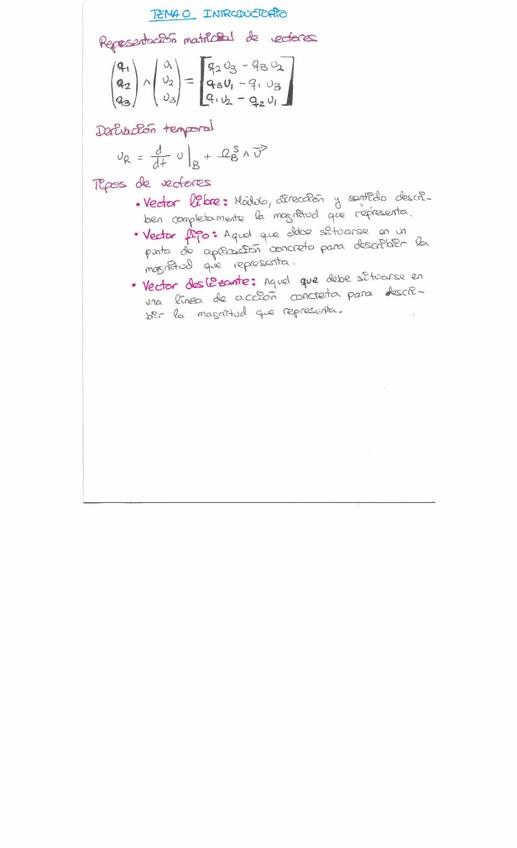 TEMA 0. INTRODUCTORIO
Representación matricial de vectores
(q1 q2 q3) ∧ (υ1 υ2 υ3) = [q2υ3 - q3υ2
q3υ1 - q1υ3
q1υ2 - q2υ1]
Derivación temporal
υR = d/dt υ|B + Ω^S_B ∧ υ⃗
Tipos de vectores
• Vector libre: Módulo, dirección y sentido descri-
ben completamente la magnitud que representa.
• Vector fijo: Aquel que debe situarse en un
punto de aplicación concreto para describir la
magnitud que representa.
• Vector deslizante: Aquel que debe situarse en
una línea de acción concreta para descri-
bir la magnitud que representa.